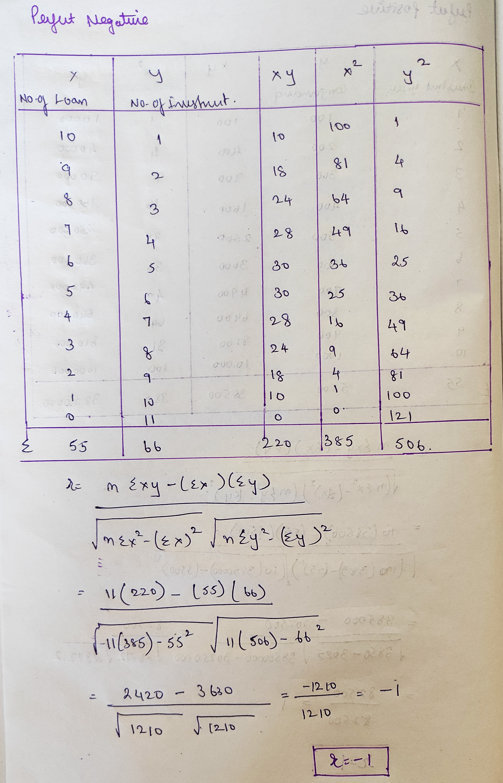 Perfect Negative
x y xy x² y²
No. of Loan No. of Investment.
10 1 10 100 1
9 2 18 81 4
8 3 24 64 9
7 4 28 49 16
6 5 30 36 25
5 6 30 25 36
4 7 28 16 49
3 8 24 9 64
2 9 18 4 81
1 10 10 1 100
0 11 0 0 121
Σ 55 66 220 385 506.
r = n Σxy - (Σx)(Σy)
√nΣx² - (Σx)² √nΣy² (Σy)²
= 11(220) - (55)(66)
√11(385) - 55² √11(506) - 66²
= 2420 - 3630 = -1210 = -1
√1210 √1210 1210
r = -1